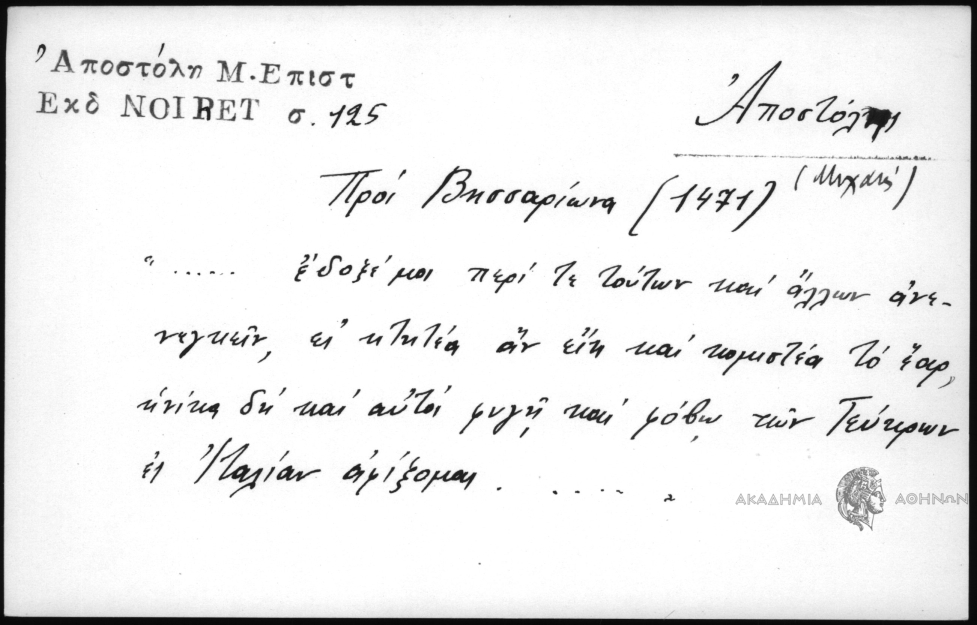 Ἀποστόλη Μ. Επιστ
Εκδ NOIRET σ. 125
Ἀποστόλης
(Μιχαήλ)
Πρός Βησσαρίωνα (1471)
"...... ἔδοξέ μοι περί τε τούτων καί ἄλλων ἀνε-
νεγκεῖν, εἰ κτητέα ἄν εἴη καί κομιστέα τό ἔαρ,
ἡνίκα δή καί αὐτός φυγῇ καί φόβῳ τῶν Τεύκρων
ἐς Ἰταλίαν ἀφίξομαι . ..... "
ΑΚΑΔΗΜΙΑ ΑΘΗΝΩΝ